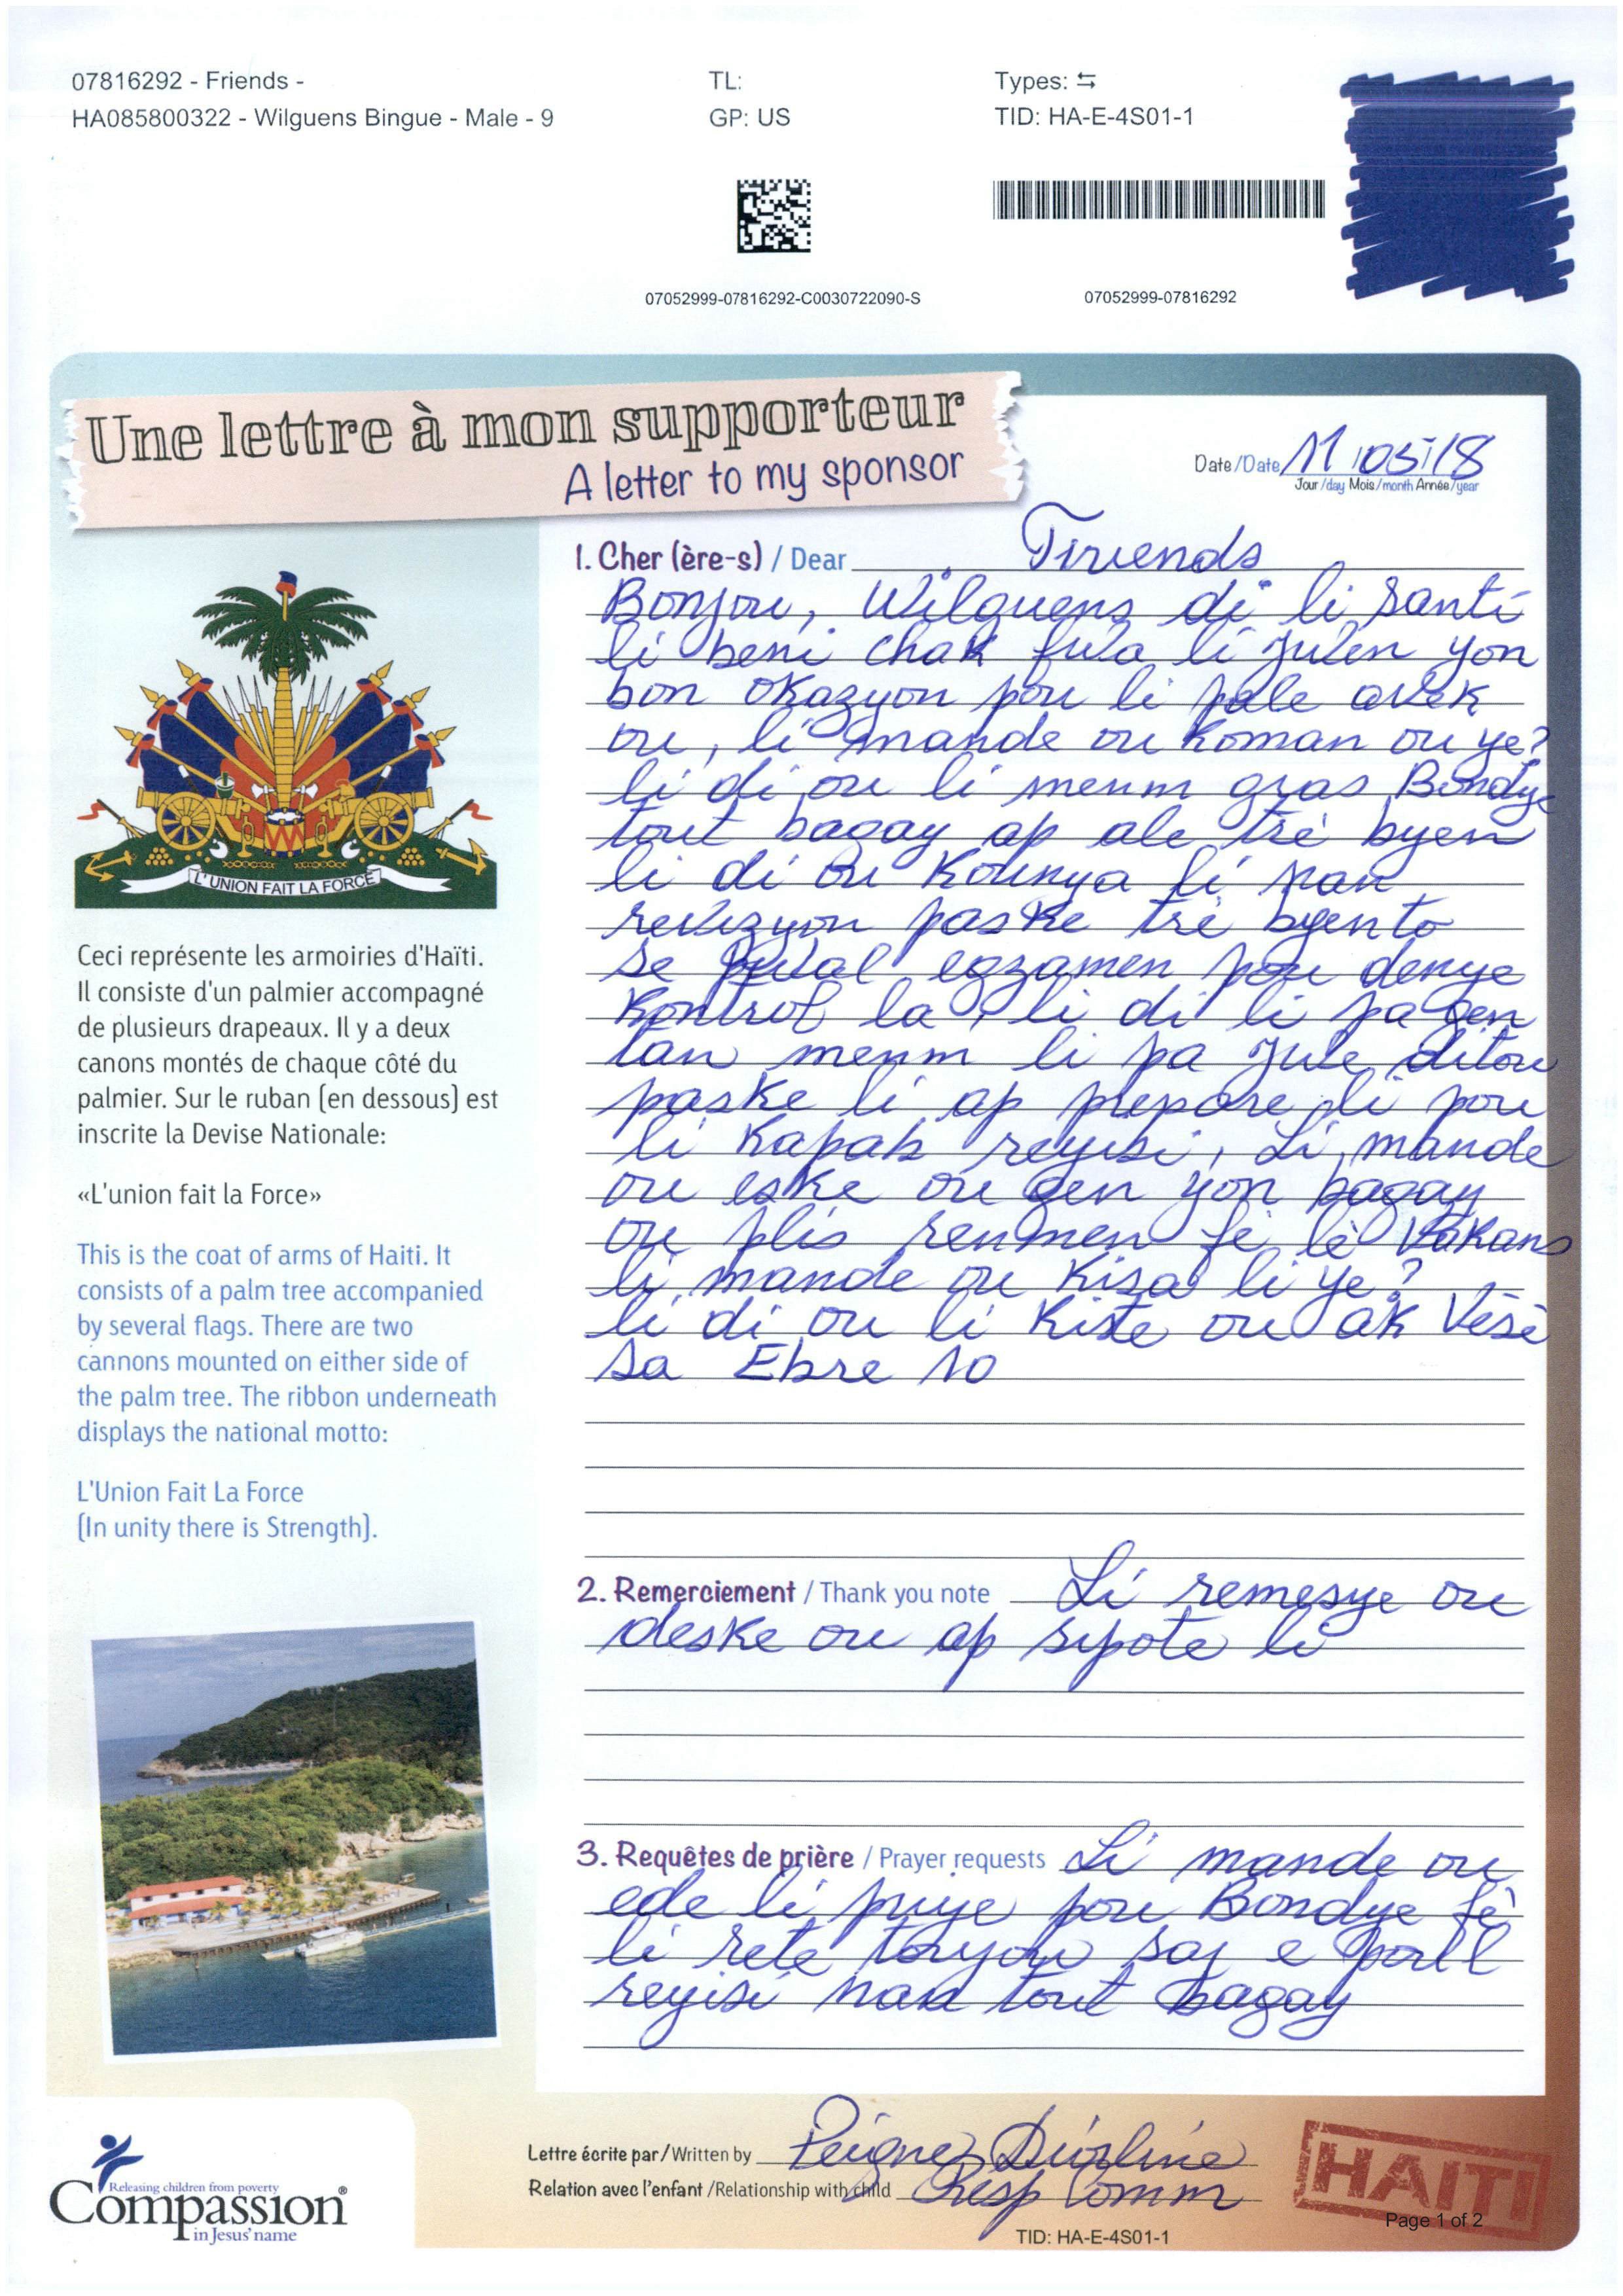 07816292 - Friends -
HA085800322 - Wilguens Bingue - Male - 9
TL:
GP: US
Types: ⇆
TID: HA-E-4S01-1
07052999-07816292-C0030722090-S
07052999-07816292
Une lettre à mon supporteur
A letter to my sponsor
Date/Date 11/05/18
Jour/day Mois/month Année/year
1. Cher (ère-s) / Dear Friends
Bonjou, Wilguens di li santi
li beni chak fwa li jwen yon
bon okazyon pou li pale avek
ou, li mande ou koman ou ye?
li di ou li menm gras Bondye
tout bagay ap ale trè byen
li di ou Kounya li nan
revizyon paske trè byento
se pwal egzamen pou denye
Kontrol la, li di li pa gen
tan menm li pa jwe ditou
paske li ap prepare li pou
li Kapab reyisi, Li mande
ou eske ou gen yon bagay
ou plis renmen fè lè Vakans
li mande ou Kisa li ye?
li di ou li Kite ou ak Vèsè
sa Ebre 10
2. Remerciement / Thank you note Li remesye ou
deske ou ap sipote li
3. Requêtes de prière / Prayer requests Li mande ou
ede li priye pou Bondye fè
li rete toujou saj e pou l
reyisi nan tout bagay
L'UNION FAIT LA FORCE
Ceci représente les armoiries d'Haïti.
Il consiste d'un palmier accompagné
de plusieurs drapeaux. Il y a deux
canons montés de chaque côté du
palmier. Sur le ruban (en dessous) est
inscrite la Devise Nationale:
«L'union fait la Force»
This is the coat of arms of Haiti. It
consists of a palm tree accompanied
by several flags. There are two
cannons mounted on either side of
the palm tree. The ribbon underneath
displays the national motto:
L'Union Fait La Force
(In unity there is Strength).
Releasing children from poverty
Compassion®
in Jesus' name
Lettre écrite par/Written by Peigne Dieline
Relation avec l'enfant /Relationship with child Resp Comm
HAITI
Page 1 of 2
TID: HA-E-4S01-1